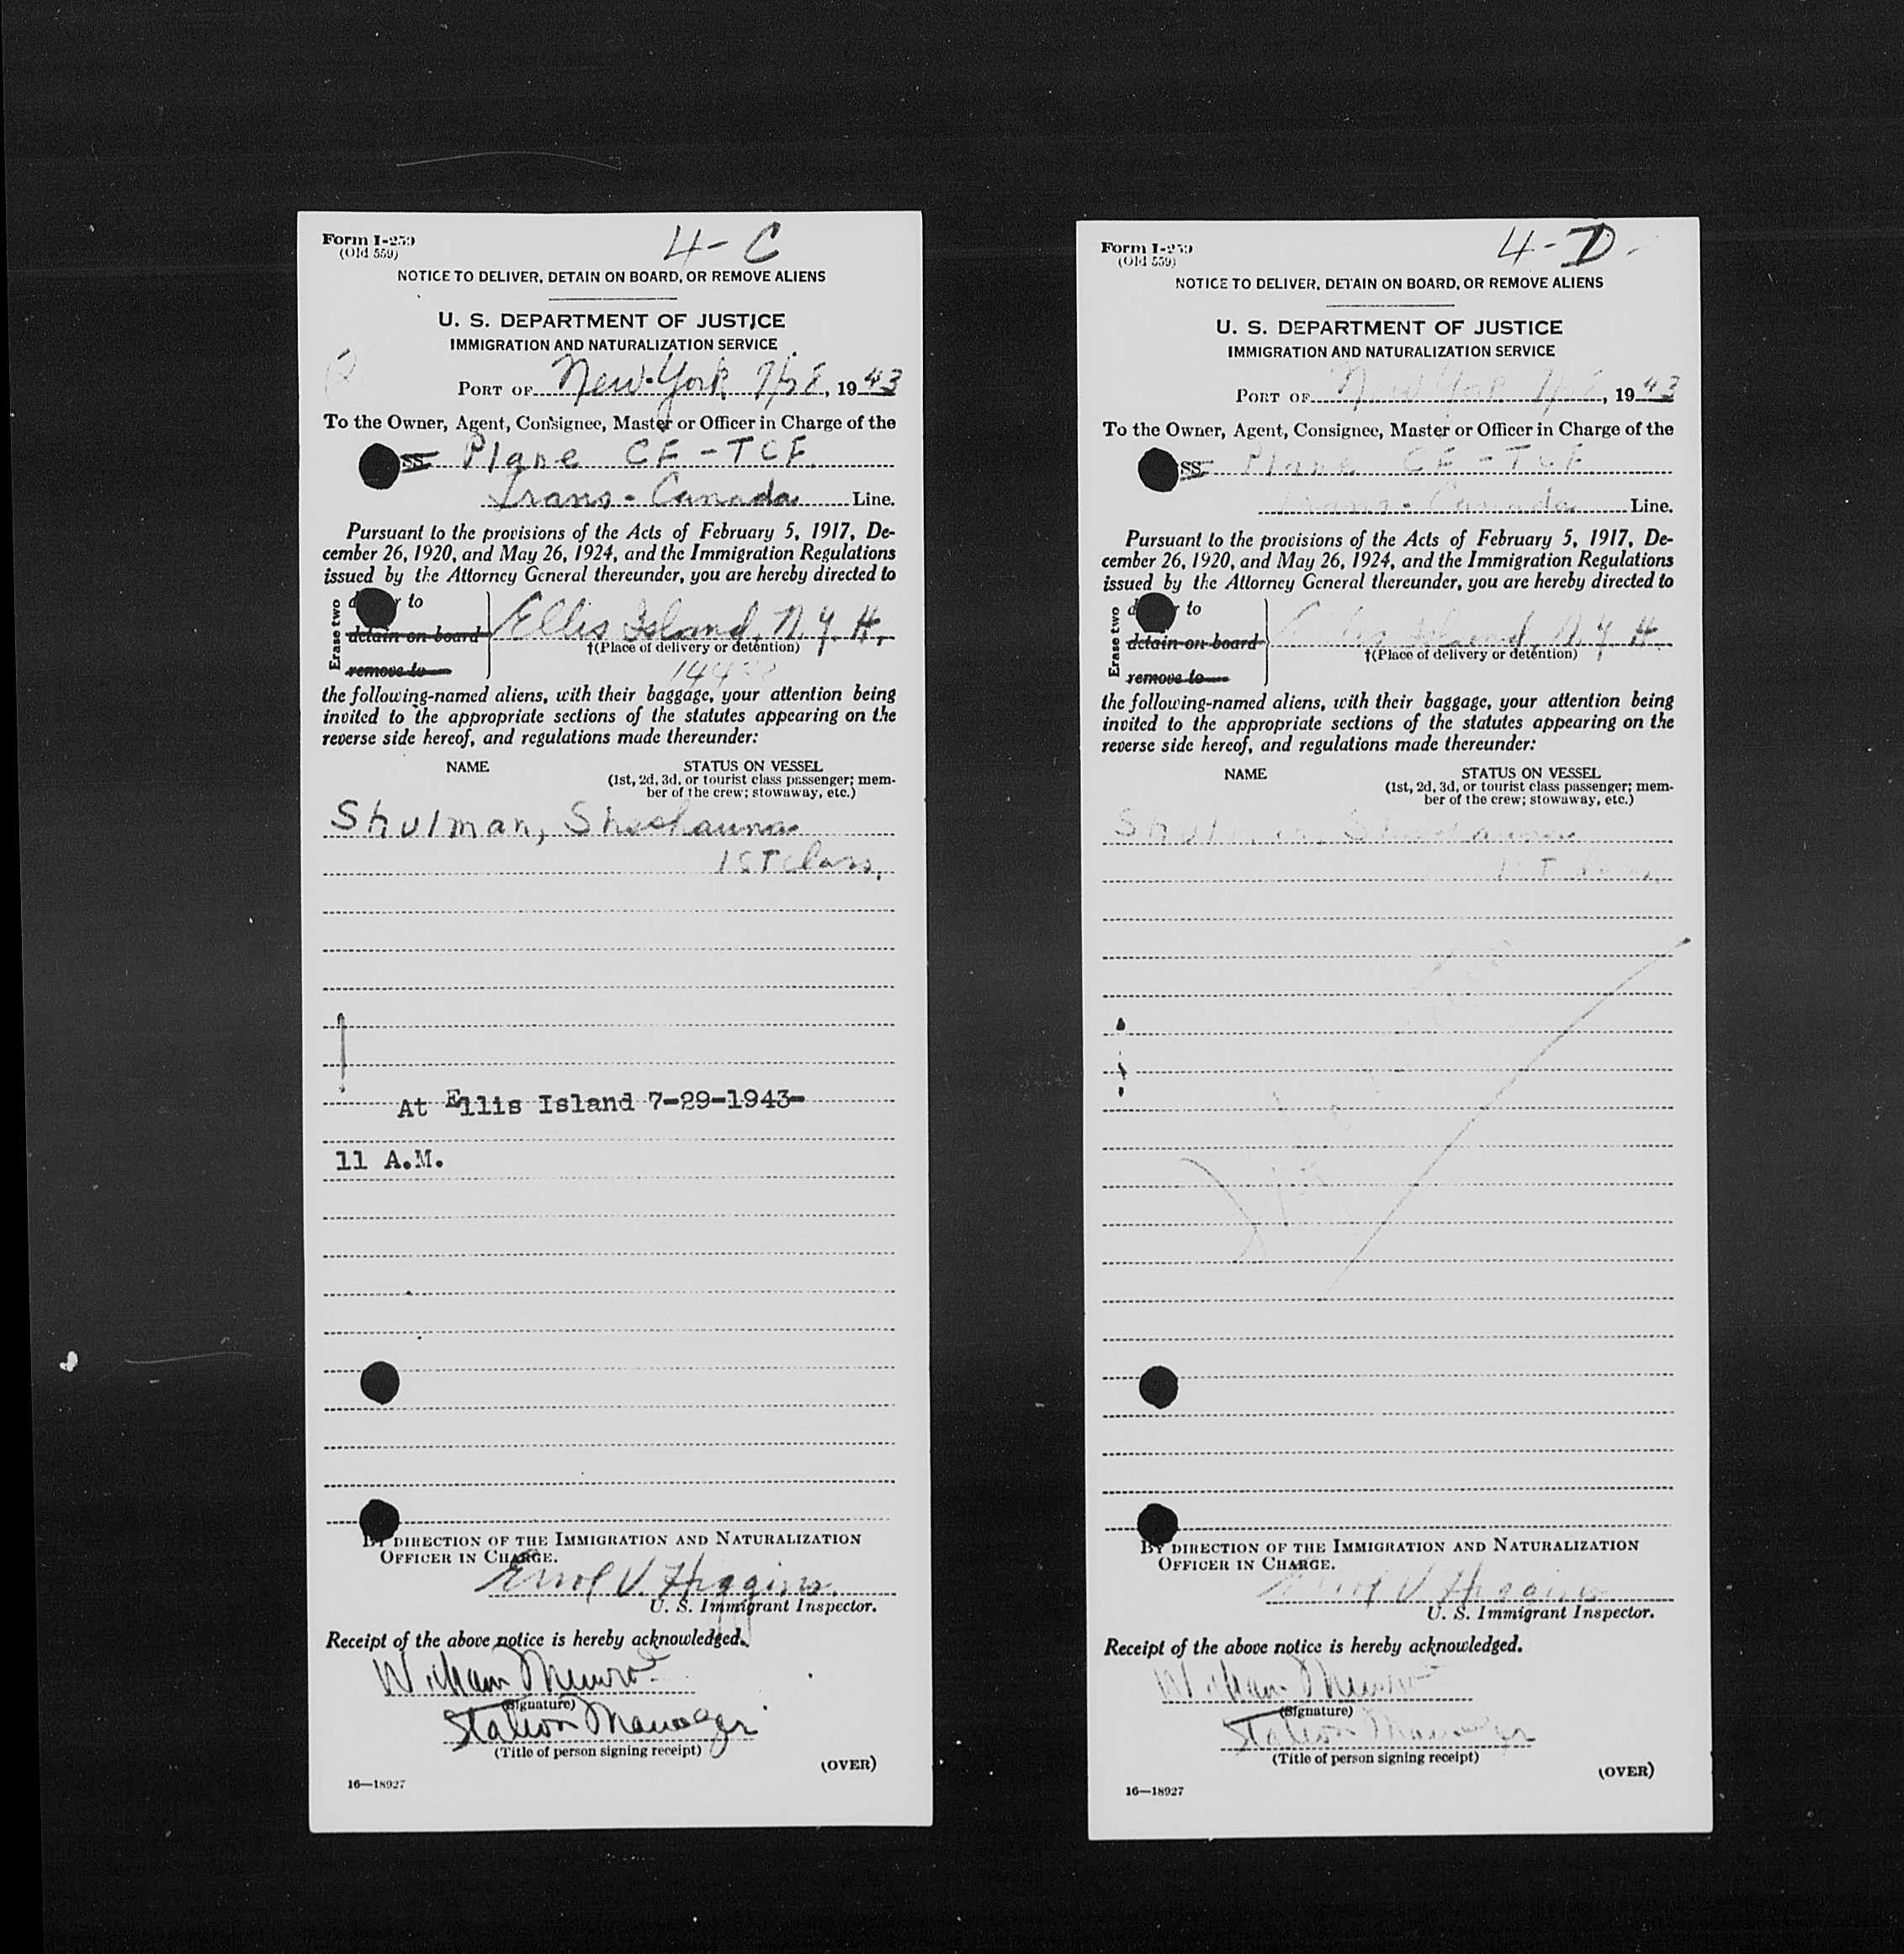 Form I-259
(Old 559)
4-C
NOTICE TO DELIVER, DETAIN ON BOARD, OR REMOVE ALIENS
U. S. DEPARTMENT OF JUSTICE
IMMIGRATION AND NATURALIZATION SERVICE
PORT OF New York 7/28, 1943
To the Owner, Agent, Consignee, Master or Officer in Charge of the
SS Plane CF-TCF
Trans-Canada Line.
Pursuant to the provisions of the Acts of February 5, 1917, De-
cember 26, 1920, and May 26, 1924, and the Immigration Regulations
issued by the Attorney General thereunder, you are hereby directed to
Erase two
to
detain on board
Ellis Island, N.Y.H.
†(Place of delivery or detention)
remove to
the following-named aliens, with their baggage, your attention being
invited to the appropriate sections of the statutes appearing on the
reverse side hereof, and regulations made thereunder:
NAME
STATUS ON VESSEL
(1st, 2d, 3d, or tourist class passenger; mem-
ber of the crew; stowaway, etc.)
Shulman, Shoshauna
1ST class.
At Ellis Island 7-29-1943-
11 A.M.
BY DIRECTION OF THE IMMIGRATION AND NATURALIZATION
OFFICER IN CHARGE.
Errol V. Higgins
U. S. Immigrant Inspector.
Receipt of the above notice is hereby acknowledged.
William Munro
(Signature)
Station Manager
(Title of person signing receipt)
(OVER)
16—18927
Form I-259
(Old 559)
4-D
NOTICE TO DELIVER, DETAIN ON BOARD, OR REMOVE ALIENS
U. S. DEPARTMENT OF JUSTICE
IMMIGRATION AND NATURALIZATION SERVICE
PORT OF New York 7/28, 1943
To the Owner, Agent, Consignee, Master or Officer in Charge of the
SS Plane CF-TCF
Trans-Canada Line.
Pursuant to the provisions of the Acts of February 5, 1917, De-
cember 26, 1920, and May 26, 1924, and the Immigration Regulations
issued by the Attorney General thereunder, you are hereby directed to
Erase two
to
detain on board
Ellis Island, N.Y.H.
†(Place of delivery or detention)
remove to
the following-named aliens, with their baggage, your attention being
invited to the appropriate sections of the statutes appearing on the
reverse side hereof, and regulations made thereunder:
NAME
STATUS ON VESSEL
(1st, 2d, 3d, or tourist class passenger; mem-
ber of the crew; stowaway, etc.)
Shulman, Shoshauna
1ST class.
BY DIRECTION OF THE IMMIGRATION AND NATURALIZATION
OFFICER IN CHARGE.
Errol V. Higgins
U. S. Immigrant Inspector.
Receipt of the above notice is hereby acknowledged.
William Munro
(Signature)
Station Manager
(Title of person signing receipt)
(OVER)
16—18927